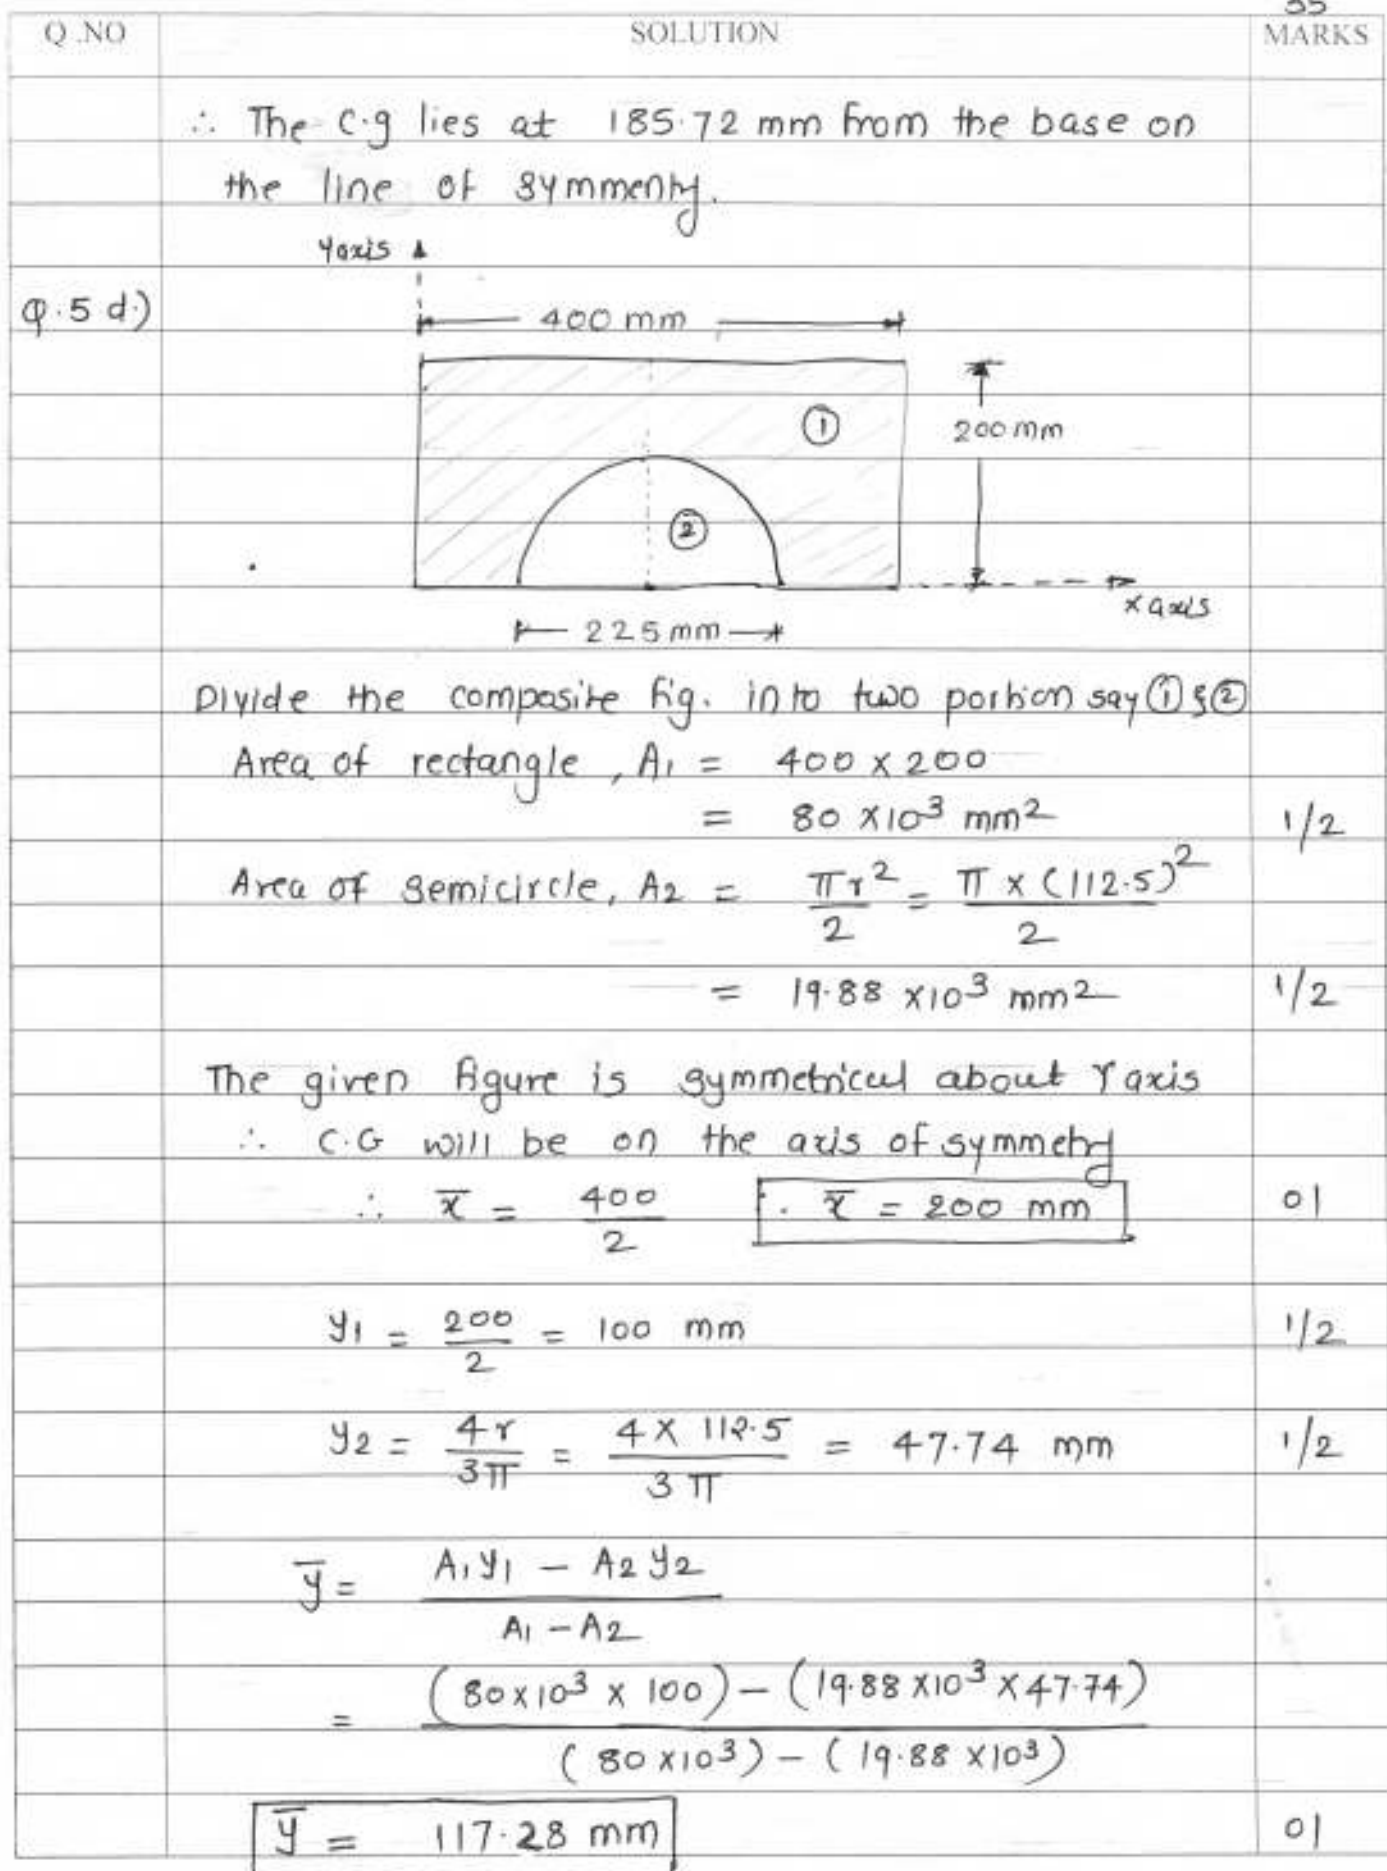 35
Q.NO SOLUTION MARKS
∴ The C.g lies at 185.72 mm from the base on
the line of symmenty.
Y axis
Q.5 d.)
400 mm
①
200 mm
②
x axis
225 mm
Divide the composite fig. into two portion say ① & ②
Area of rectangle, A₁ = 400 × 200
= 80 × 10³ mm² 1/2
Area of semicircle, A₂ = πr²/2 = π × (112.5)²/2
= 19.88 × 10³ mm² 1/2
The given figure is symmetrical about Y axis
∴ C.G will be on the axis of symmetry
∴ x̄ = 400/2 ∴ x̄ = 200 mm 01
y₁ = 200/2 = 100 mm 1/2
y₂ = 4r/3π = 4 × 112.5/3π = 47.74 mm 1/2
ȳ = A₁y₁ − A₂y₂/A₁ − A₂
= (80×10³ × 100) − (19.88×10³ × 47.74)/(80×10³) − (19.88×10³)
ȳ = 117.28 mm 01